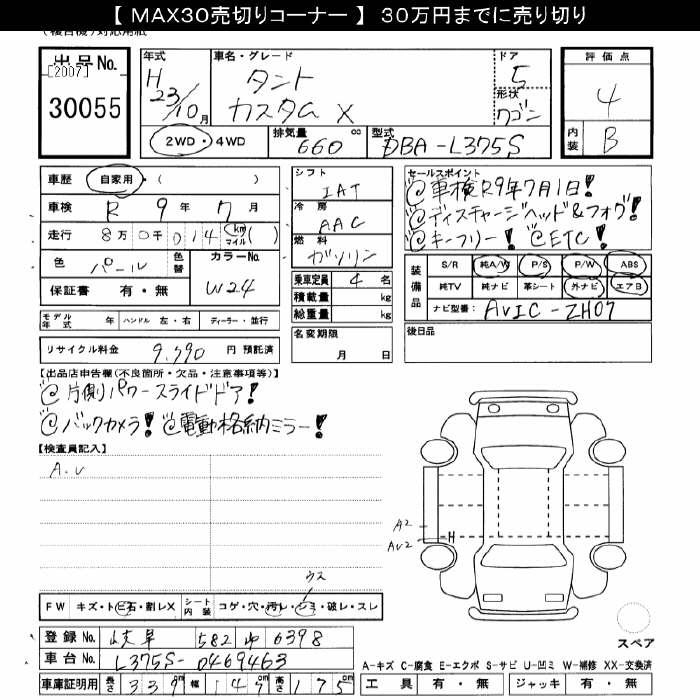 【 MAX30売切りコーナー 】 30万円までに売り切り
出品No.
[2007]
30055
年式 車名・グレード ドア 評価点
H 23/10月 タント カスタム X 5 4
形状 ワゴン
2WD・4WD 排気量 660 cc 型式 DBA-L375S 内装 B
車歴 自家用・( )
車検 R 9年 7月
走行 8万0千014 (km マイル)( )
色 パール 色替 カラーNo. W24
保証書 有・無
シフト IAT
冷房 AAC
燃料 ガソリン
乗車定員 4 名
積載量 kg
総重量 kg
セールスポイント
@車検R9年7月1日!
@ディスチャージヘッド&フォグ!
@キーフリー! @ETC!
装備品 S/R 純A/W P/S P/W ABS
純TV 純ナビ 革シート 外ナビ エアB
ナビ型番: AVIC-ZH07
モデル年式 年 ハンドル 左・右 ディーラー・並行
名変期限 月 日
後日品
リサイクル料金 9,990 円 預託済
【出品店申告欄(不良箇所・欠品・注意事項等)】
@片側パワースライドドア!
@バックカメラ! @電動格納ミラー!
【検査員記入】
A.U
A2
AU2 H
ウス
FW キズ・トビ石・割レX シート内装 コゲ・穴・汚レ・シミ・破レ・スレ
スペア
登録No. 岐阜 582 ゆ 6398
車台No. L375S-0469463
A-キズ C-腐食 E-エクボ S-サビ U-凹ミ W-補修 XX-交換済
車庫証明用 長さ 339 幅 147 高さ 175
工具 有・無 ジャッキ 有・無